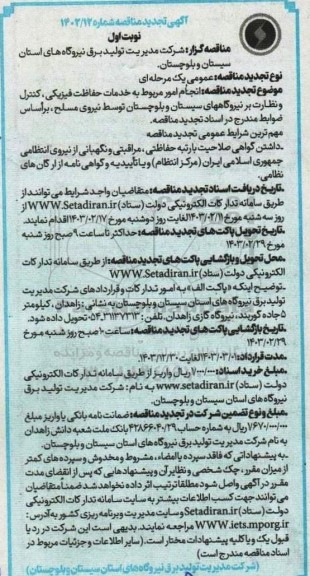 آگهی تجدید مناقصه شماره ۱۴۰۳/۱۲
نوبت اول
مناقصه گزار: شرکت مدیریت تولید برق نیروگاه های استان
سیستان و بلوچستان.
نوع تجدید مناقصه: عمومی یک مرحله ای
موضوع تجدید مناقصه: انجام امور مربوط به خدمات حفاظت فیزیکی، کنترل
و نظارت بر نیروگاههای سیستان و بلوچستان توسط نیروی مسلح، براساس
ضوابط مندرج در اسناد تجدید مناقصه.
مهم ترین شرایط عمومی تجدید مناقصه
ـ داشتن گواهی صلاحیت یا رتبه حفاظتی، مراقبتی و نگهبانی از نیروی انتظامی
جمهوری اسلامی ایران (مرکز انتظام) و یا تأییدیه و گواهی نامه از ارگان های
نظامی.
ـ تاریخ دریافت اسناد تجدید مناقصه: متقاضیان واجد شرایط می توانند از
طریق سامانه تدارکات الکترونیکی دولت (ستاد) WWW.Setadiran.ir از
روز سه شنبه مورخ ۱۴۰۳/۰۲/۱۱ لغایت روز دوشنبه مورخ ۱۴۰۳/۰۲/۱۷ اقدام نمایند.
ـ تاریخ تحویل پاکت های تجدید مناقصه: حداکثر تا ساعت ۹ صبح روز شنبه
مورخ ۱۴۰۳/۰۲/۲۹
ـ محل تحویل و بازگشایی پاکت های تجدید مناقصه: از طریق سامانه تدارکات
الکترونیکی دولت (ستاد) WWW.Setadiran.ir
ـ توضیح اینکه «پاکت الف» به امور تدارکات و قراردادهای شرکت مدیریت
تولید برق نیروگاه های استان سیستان و بلوچستان به نشانی: زاهدان، کیلومتر
۵ جاده کورین، نیروگاه گازی زاهدان. تلفن: ۳۱۱۳۷۳۱۳-۰۵۴ تحویل داده شود.
ـ تاریخ بازگشایی پاکت های تجدید مناقصه: ساعت ۱۰ صبح روز شنبه مورخ
۱۴۰۳/۰۲/۲۹
ـ مدت قرارداد: ۱۴۰۳/۰۳/۰۱ لغایت ۱۴۰۳/۱۲/۳۰
ـ مبلغ خرید اسناد: ریال واریز از طریق سامانه تدارکات الکترونیکی
دولت (ستاد) www.setadiran.ir به نام: شرکت مدیریت تولید برق
نیروگاه های استان سیستان و بلوچستان.
ـ مبلغ و نوع تضمین شرکت در تجدید مناقصه: ضمانت نامه بانکی یا واریز مبلغ
ریال به شماره حساب بانک ملت شعبه دانش زاهدان
به نام شرکت مدیریت تولید برق نیروگاه های استان سیستان و بلوچستان.
ـ به پیشنهاداتی که فاقد سپرده یا امضاء، مشروط و مخدوش و سپرده های کمتر
از میزان مقرر، چک شخصی و نظایر آن و پیشنهادهایی که پس از انقضای مدت
مقرر در آگهی واصل شود مطلقا ترتیب اثر داده نخواهد شد ضمنا متقاضیان
می توانند جهت کسب اطلاعات بیشتر به سایت سامانه تدارکات الکترونیکی
دولت (ستاد) Setadiran.ir و سایت مدیریت و برنامه ریزی کشور به آدرس:
WWW.iets.mporg.ir مراجعه نمایند. بدیهی است این شرکت در رد یا
قبول یک و یا کلیه پیشنهادات مختار است. (سایر اطلاعات و جزئیات مربوط در
اسناد مناقصه مندرج است)
(شرکت مدیریت تولید برق نیروگاه های استان سیستان و بلوچستان)